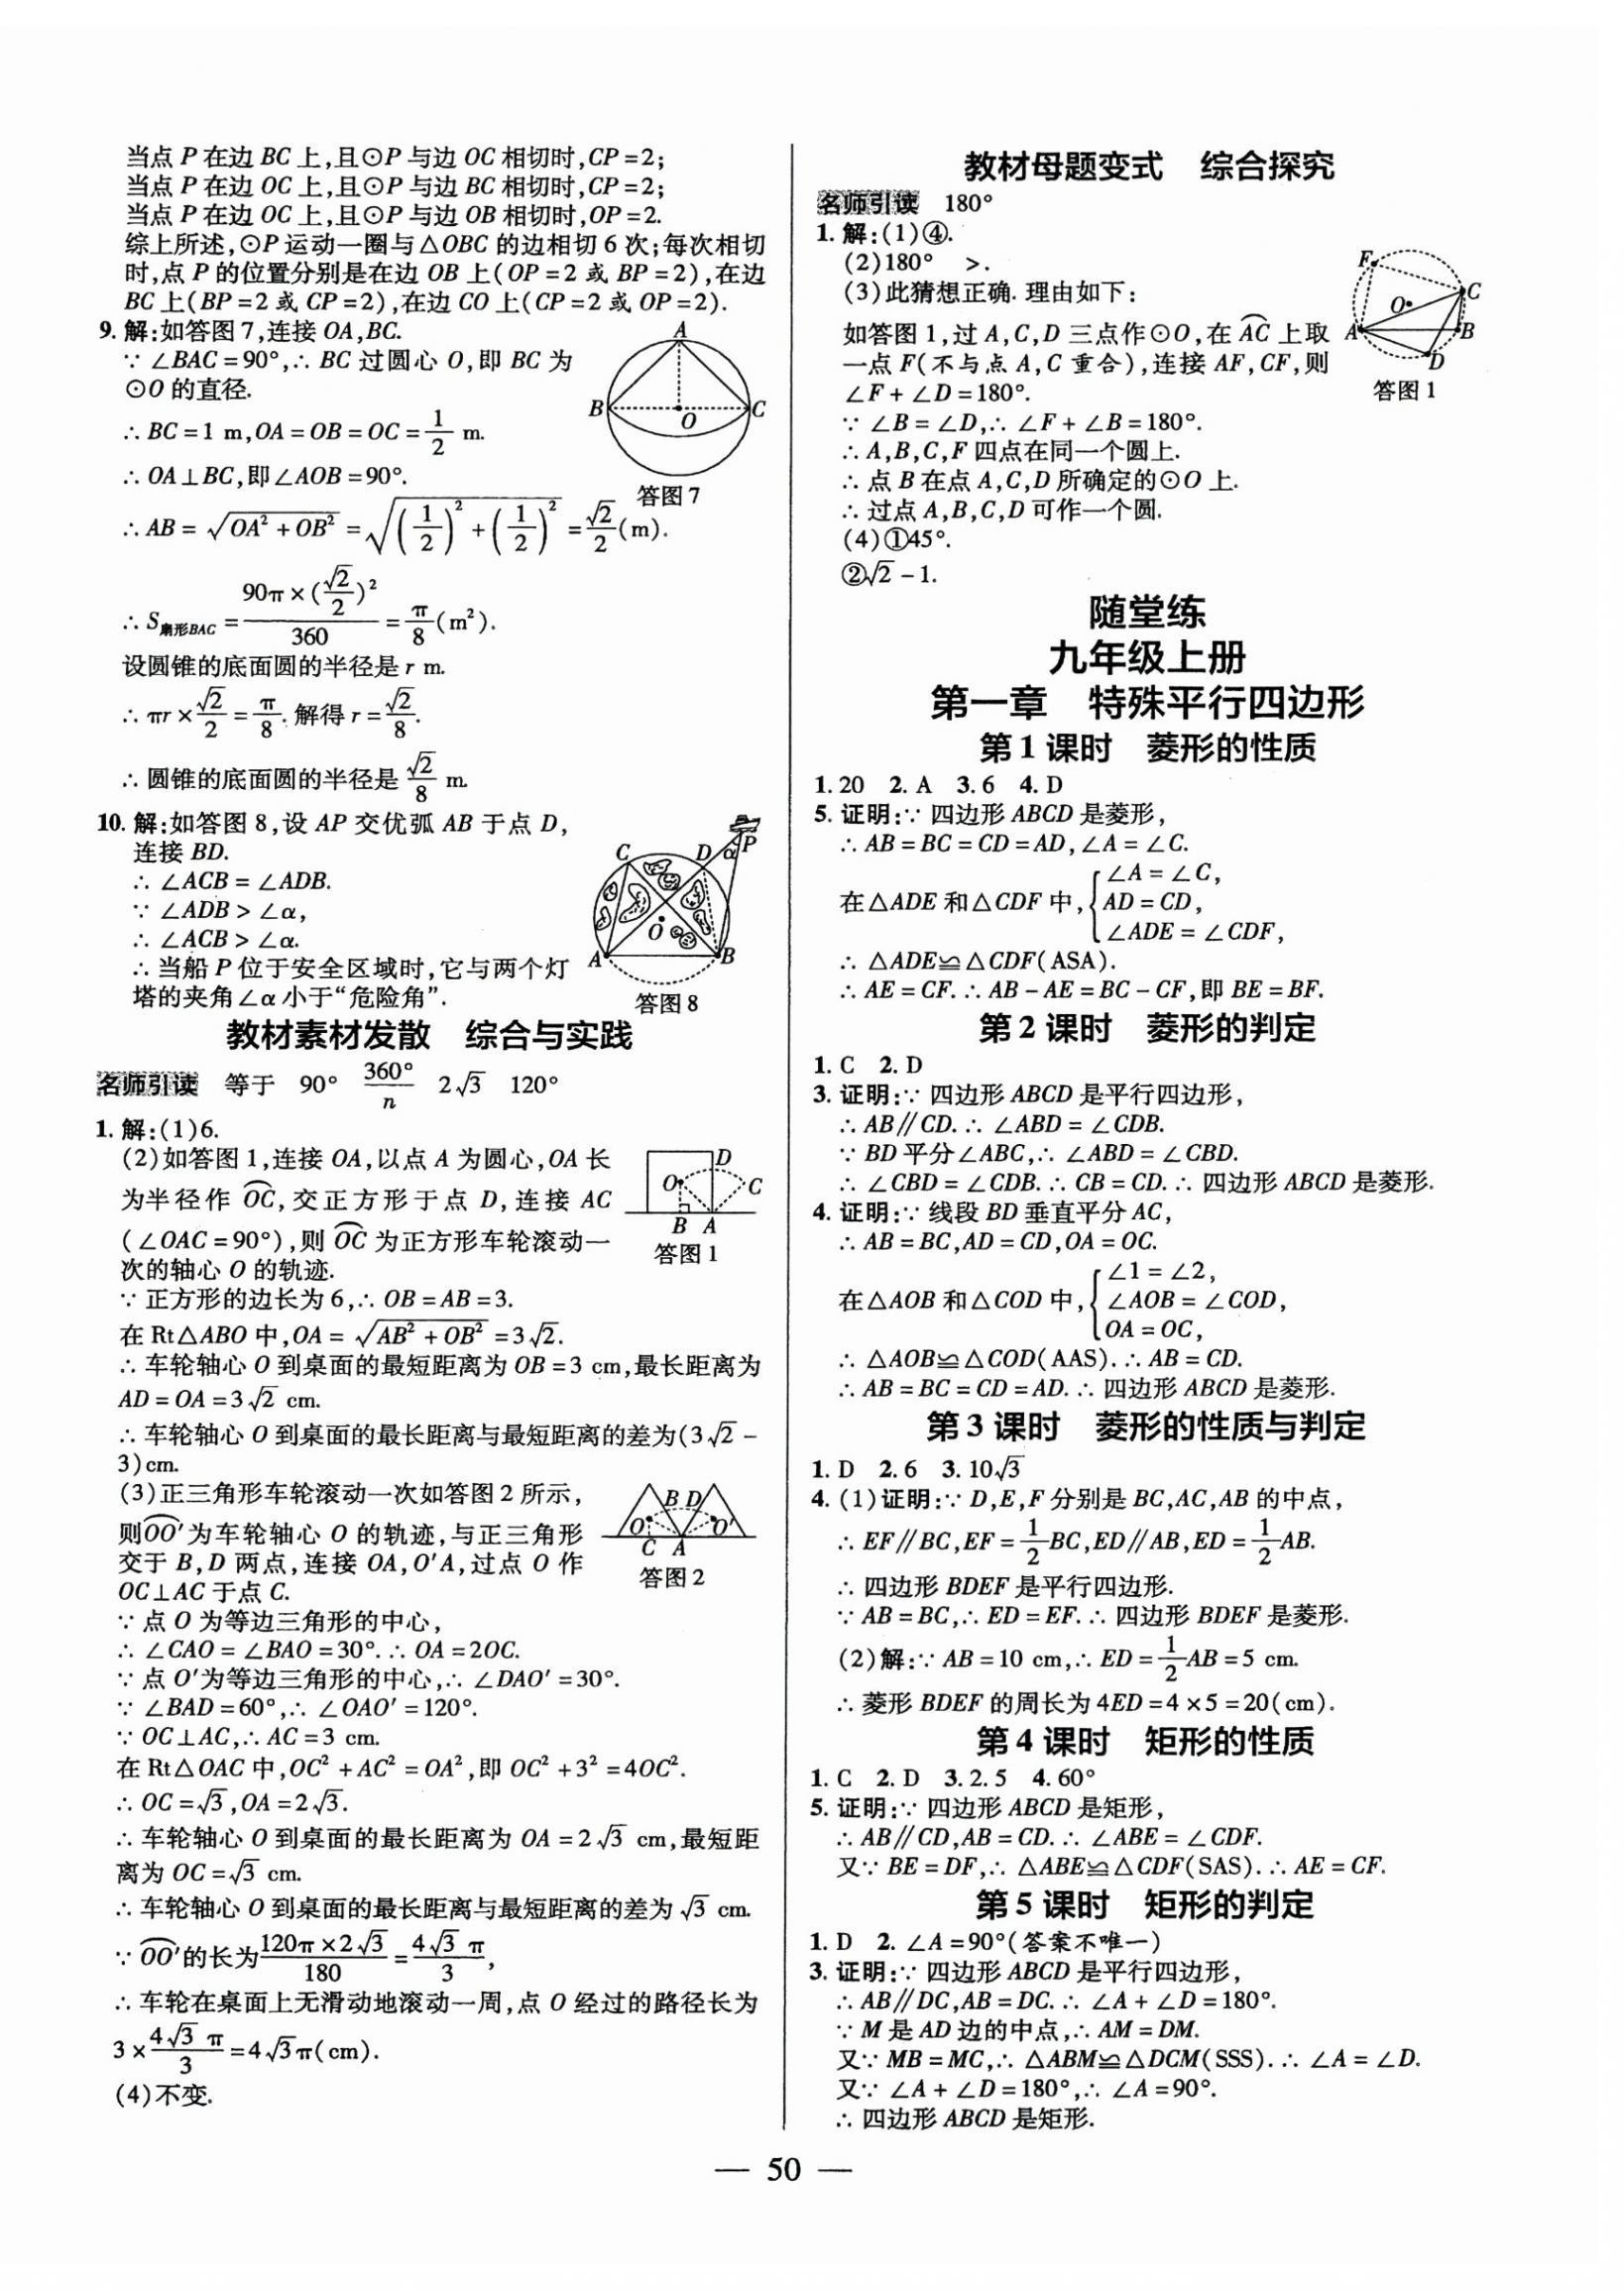 当点 P 在边 BC 上,且⊙P 与边 OC 相切时,CP=2;
当点 P 在边 OC 上,且⊙P 与边 BC 相切时,CP=2;
当点 P 在边 OC 上,且⊙P 与边 OB 相切时,OP=2.
综上所述,⊙P 运动一圈与△OBC 的边相切 6 次;每次相切
时,点 P 的位置分别是在边 OB 上(OP=2 或 BP=2),在边
BC 上(BP=2 或 CP=2),在边 CO 上(CP=2 或 OP=2).
9. 解:如答图 7,连接 OA,BC.
∵ ∠BAC=90°,∴ BC 过圆心 O,即 BC 为
⊙O 的直径.
∴ BC=1 m,OA=OB=OC=1/2 m.
∴ OA⊥BC,即∠AOB=90°.
A
B
O
C
答图 7
∴ AB=√(OA²+OB²)=√((1/2)²+(1/2)²)=√2/2(m).
∴ S扇形BAC=90π×(√2/2)²/360=π/8(m²).
设圆锥的底面圆的半径是 r m.
∴ πr×√2/2=π/8. 解得 r=√2/8.
∴ 圆锥的底面圆的半径是 √2/8 m.
10. 解:如答图 8,设 AP 交优弧 AB 于点 D,
连接 BD.
∴ ∠ACB=∠ADB.
∵ ∠ADB>∠α,
∴ ∠ACB>∠α.
∴ 当船 P 位于安全区域时,它与两个灯
塔的夹角∠α 小于“危险角”.
C D α P
O
A B
答图 8
教材素材发散 综合与实践
名师引读 等于 90° 360°/n 2√3 120°
1. 解:(1)6.
(2)如答图 1,连接 OA,以点 A 为圆心,OA 长
为半径作 OC⌒,交正方形于点 D,连接 AC
(∠OAC=90°),则 OC⌒ 为正方形车轮滚动一
次的轴心 O 的轨迹.
D
O C
B A
答图 1
∵ 正方形的边长为 6,∴ OB=AB=3.
在 Rt△ABO 中,OA=√(AB²+OB²)=3√2.
∴ 车轮轴心 O 到桌面的最短距离为 OB=3 cm,最长距离为
AD=OA=3√2 cm.
∴ 车轮轴心 O 到桌面的最长距离与最短距离的差为(3√2-
3)cm.
(3)正三角形车轮滚动一次如答图 2 所示,
则OO′⌒为车轮轴心 O 的轨迹,与正三角形
交于 B,D 两点,连接 OA,O′A,过点 O 作
OC⊥AC 于点 C.
B D
O O′
C A
答图 2
∵ 点 O 为等边三角形的中心,
∴ ∠CAO=∠BAO=30°.∴ OA=2OC.
∵ 点 O′为等边三角形的中心,∴ ∠DAO′=30°.
∵ ∠BAD=60°,∴ ∠OAO′=120°.
∵ OC⊥AC,∴ AC=3 cm.
在 Rt△OAC 中,OC²+AC²=OA²,即 OC²+3²=4OC².
∴ OC=√3,OA=2√3.
∴ 车轮轴心 O 到桌面的最长距离为 OA=2√3 cm,最短距
离为 OC=√3 cm.
∴ 车轮轴心 O 到桌面的最长距离与最短距离的差为√3 cm.
∵ OO′⌒的长为120π×2√3/180=4√3π/3,
∴ 车轮在桌面上无滑动地滚动一周,点 O 经过的路径长为
3×4√3π/3=4√3π(cm).
(4)不变.
教材母题变式 综合探究
名师引读 180°
1. 解:(1)④.
(2)180° >.
(3)此猜想正确. 理由如下:
如答图 1,过 A,C,D 三点作⊙O,在 AC⌒ 上取
一点 F(不与点 A,C 重合),连接 AF,CF,则
∠F+∠D=180°.
F
C
O
A B
D
答图 1
∵ ∠B=∠D,∴ ∠F+∠B=180°.
∴ A,B,C,F 四点在同一个圆上.
∴ 点 B 在点 A,C,D 所确定的⊙O 上.
∴ 过点 A,B,C,D 可作一个圆.
(4)①45°.
②√2-1.
随堂练
九年级上册
第一章 特殊平行四边形
第 1 课时 菱形的性质
1. 20 2. A 3. 6 4. D
5. 证明:∵ 四边形 ABCD 是菱形,
∴ AB=BC=CD=AD,∠A=∠C.
在△ADE 和△CDF 中,{∠A=∠C,
AD=CD,
∠ADE=∠CDF,
∴ △ADE≌△CDF(ASA).
∴ AE=CF.∴ AB-AE=BC-CF,即 BE=BF.
第 2 课时 菱形的判定
1. C 2. D
3. 证明:∵ 四边形 ABCD 是平行四边形,
∴ AB∥CD.∴ ∠ABD=∠CDB.
∵ BD 平分∠ABC,∴ ∠ABD=∠CBD.
∴ ∠CBD=∠CDB.∴ CB=CD.∴ 四边形 ABCD 是菱形.
4. 证明:∵ 线段 BD 垂直平分 AC,
∴ AB=BC,AD=CD,OA=OC.
在△AOB 和△COD 中,{∠1=∠2,
∠AOB=∠COD,
OA=OC,
∴ △AOB≌△COD(AAS).∴ AB=CD.
∴ AB=BC=CD=AD.∴ 四边形 ABCD 是菱形.
第 3 课时 菱形的性质与判定
1. D 2. 6 3. 10√3
4. (1)证明:∵ D,E,F 分别是 BC,AC,AB 的中点,
∴ EF∥BC,EF=1/2BC,ED∥AB,ED=1/2AB.
∴ 四边形 BDEF 是平行四边形.
∵ AB=BC,∴ ED=EF.∴ 四边形 BDEF 是菱形.
(2)解:∵ AB=10 cm,∴ ED=1/2AB=5 cm.
∴ 菱形 BDEF 的周长为 4ED=4×5=20(cm).
第 4 课时 矩形的性质
1. C 2. D 3. 2.5 4. 60°
5. 证明:∵ 四边形 ABCD 是矩形,
∴ AB∥CD,AB=CD.∴ ∠ABE=∠CDF.
又∵ BE=DF,∴ △ABE≌△CDF(SAS).∴ AE=CF.
第 5 课时 矩形的判定
1. D 2. ∠A=90°(答案不唯一)
3. 证明:∵ 四边形 ABCD 是平行四边形,
∴ AB∥DC,AB=DC.∴ ∠A+∠D=180°.
∵ M 是 AD 边的中点,∴ AM=DM.
又∵ MB=MC,∴ △ABM≌△DCM(SSS).∴ ∠A=∠D.
又∵ ∠A+∠D=180°,∴ ∠A=90°.
∴ 四边形 ABCD 是矩形.
— 50 —